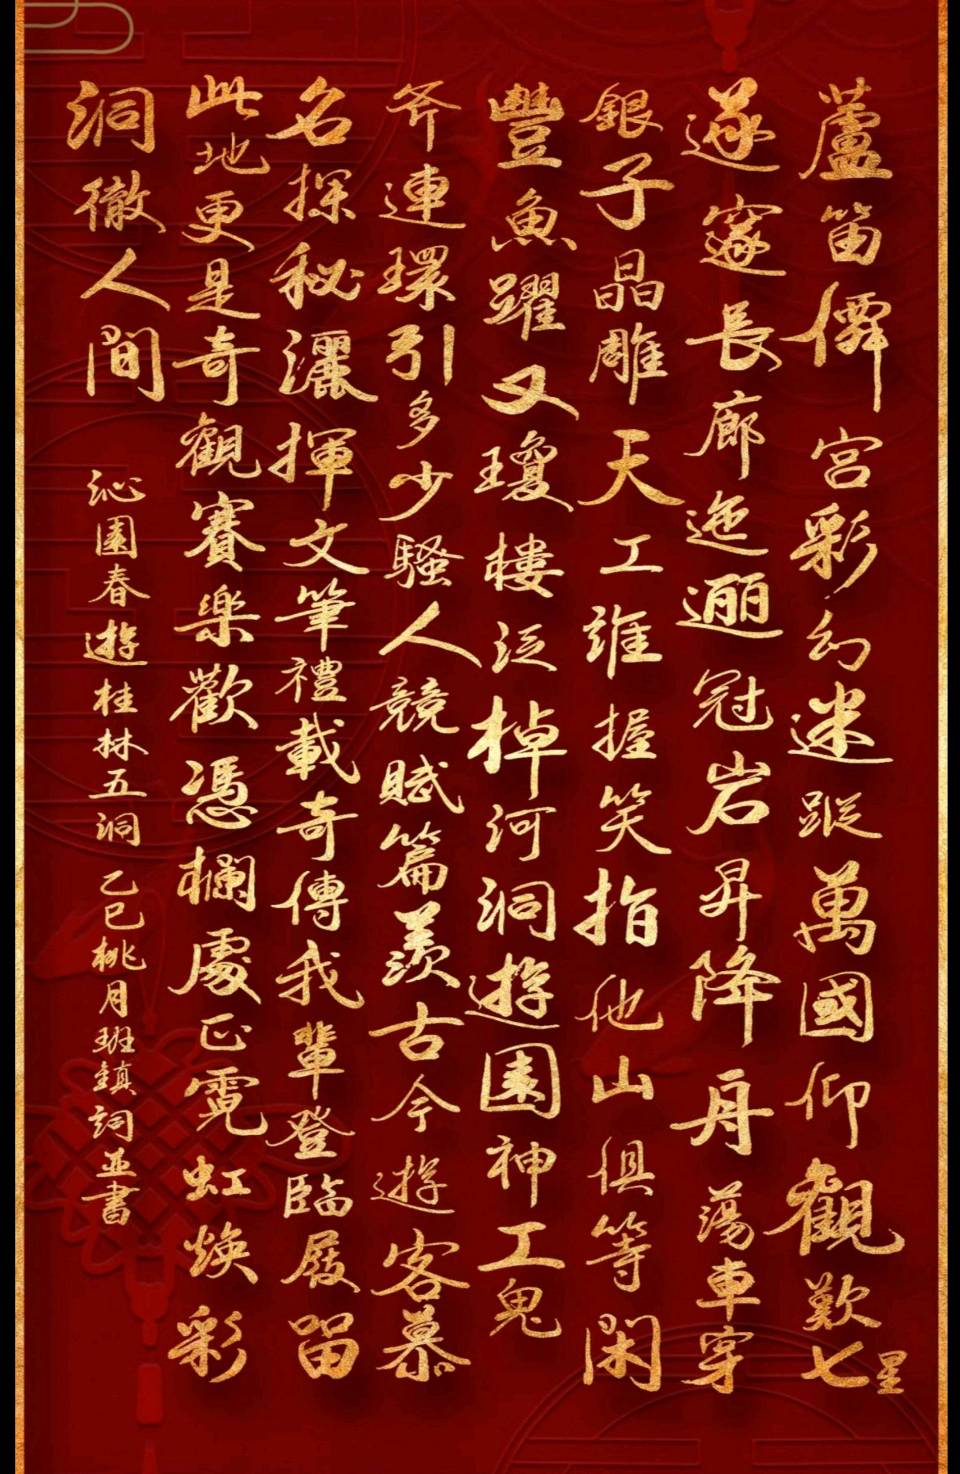 蘆笛僊宮彩幻迷蹤萬國仰觀歎七星
遂邃長廊迤逦冠岩昇降舟蕩車穿
銀子晶雕天工誰握笑指他山俱等閑
豐魚躍又瓊樓泛棹河洞遊園神工鬼
斧連環引多少騷人競賦篇羨古今遊客慕
名探秘灑揮文筆禮載奇傳我輩登臨屐留
此地更是奇觀賽樂歡憑欄處正霓虹煥彩
洞徹人間
沁園春遊桂林五洞乙巳桃月班鎮詞並書